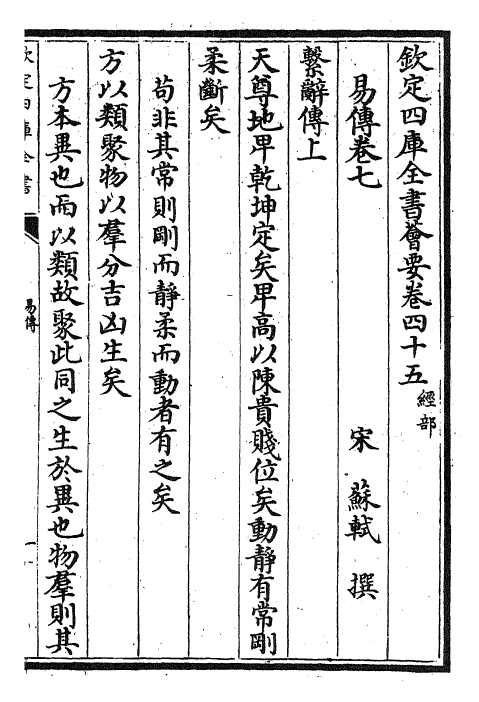 欽定四庫全書薈要卷四十五 經部
易傳卷七 宋 蘇軾 撰
繫辭傳上
天尊地卑乾坤定矣卑高以陳貴賤位矣動靜有常剛
柔斷矣
苟非其常則剛而靜柔而動者有之矣
方以類聚物以羣分吉凶生矣
方本異也而以類故聚此同之生於異也物羣則其
欽定四庫全書
易傳
一